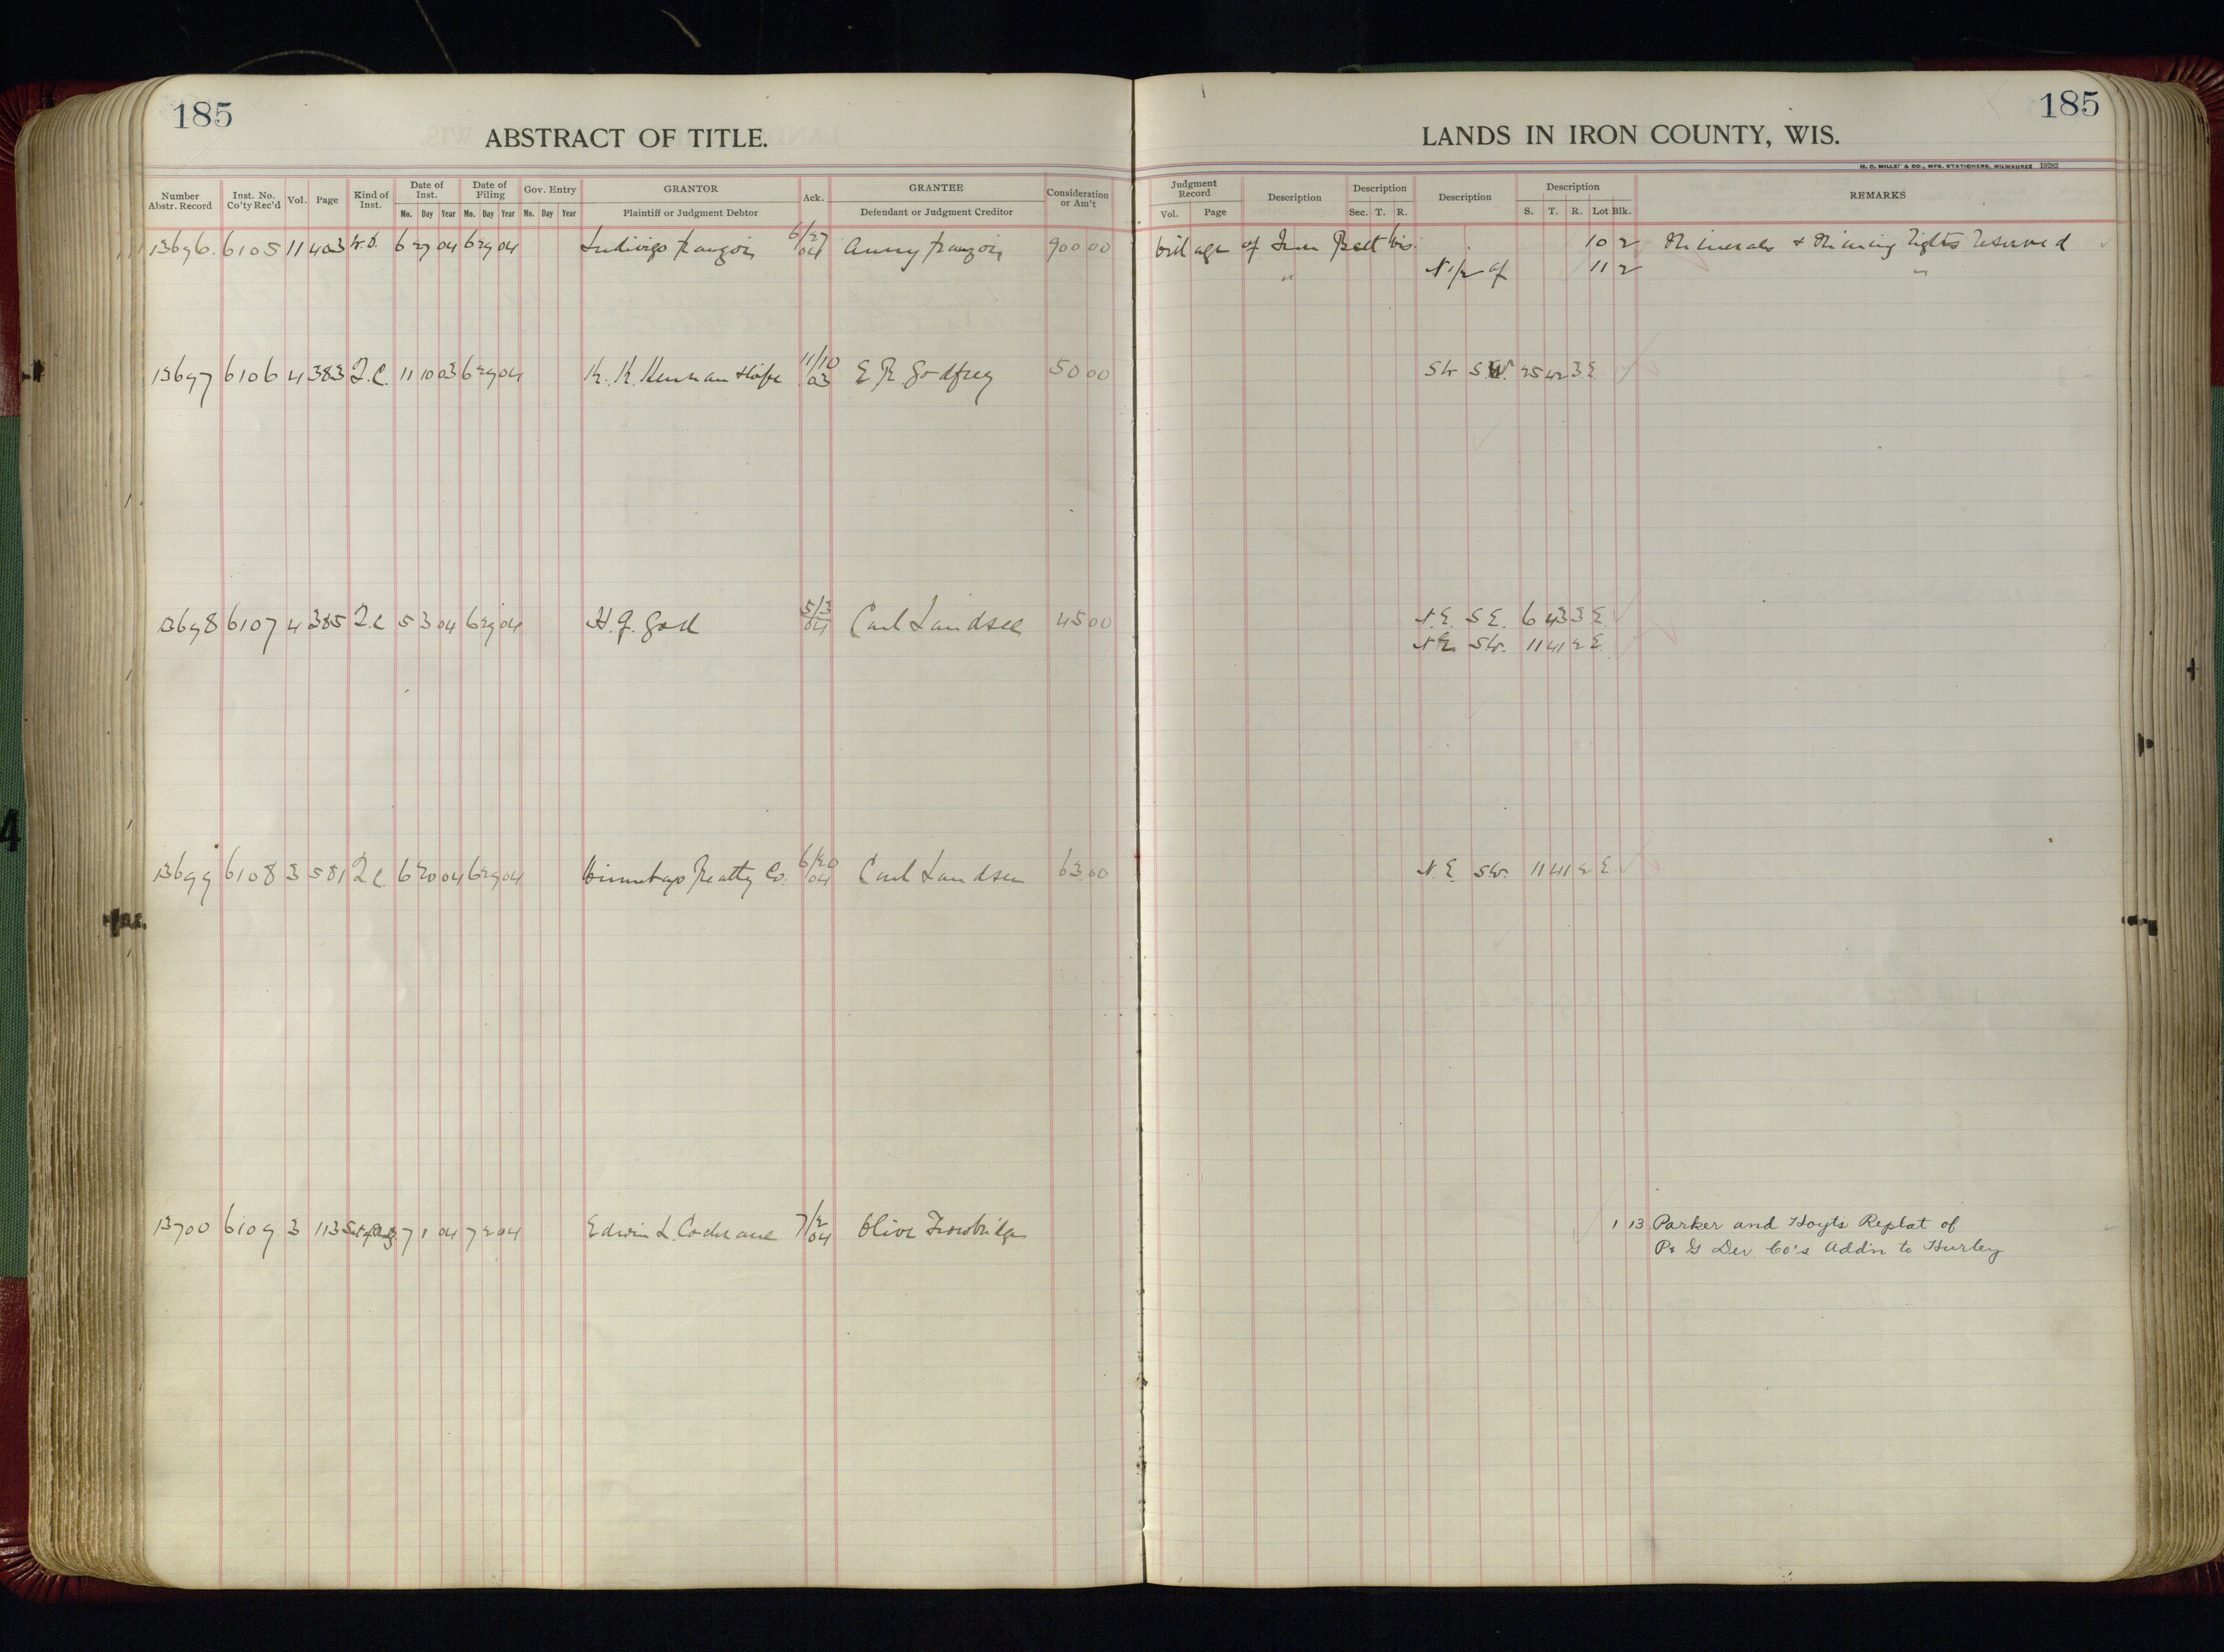 185
ABSTRACT OF TITLE.
Number Abstr. Record Inst. No. Co'ty Rec'd Vol. Page Kind of Inst. Date of Inst. Mo. Day Year Date of Filing Mo. Day Year Gov. Entry Mo. Day Year GRANTOR Plaintiff or Judgment Debtor Ack. GRANTEE Defendant or Judgment Creditor Consideration or Am't
185
LANDS IN IRON COUNTY, WIS.
H. C. MILLER & CO., MFG. STATIONERS, MILWAUKEE 19282
Judgment Record Vol. Page Description Description Sec. T. R. Description Description S. T. R. Lot Blk. REMARKS
13696. 6105 11 403 W.D. 6 27 04 6 29 04 6/27 04 900 00 Village of Iron Belt Wis. 10 2 Minerals & Mining rights reserved
" N 1/2 of 11 2 "
13697 6106 4 383 Q.C. 11 10 03 6 29 04 K. K. Kennan & Wife 11/10 03 E R Godfrey 50 00 SW SW. 25 42 3 E.
13698 6107 4 385 Q.C 5 3 04 6 29 04 H. J. 5/3 04 Carl Landsee 45 00 N.E. S E. 6 43 3 E.
NE SW. 11 41 2 E
13699 6108 3 581 Q C 6 20 04 6 29 04 Winnebago Realty Co. 6/20 04 Carl Landsee 63 00 N.E. SW. 11 41 2 E.
13700 6109 3 113 7 1 04 7 2 04 Edwin L. Cochrane 7/2 04 Olive Trowbridge 1 13 Parker and Hoyts Replat of
P & G Dev. Co's Add'n to Hurley